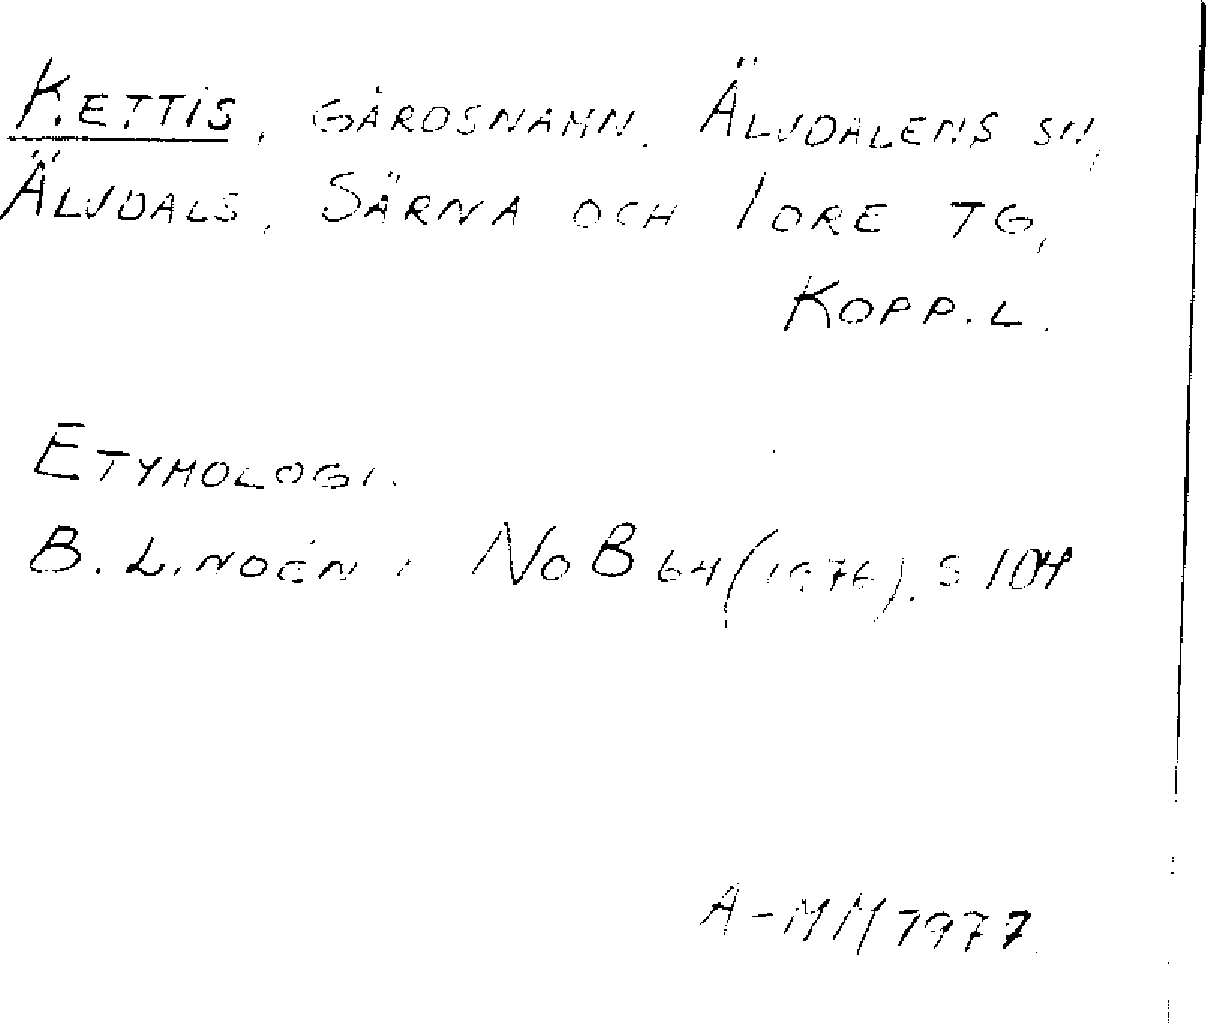 Kettis, gårdsnamn. Älvdalens sn,
Älvdals, Särna och Idre tg,
Kopp.l.
Etymologi.
B. Lindén i NoB 64 (1976). s 104
A-MM 1977